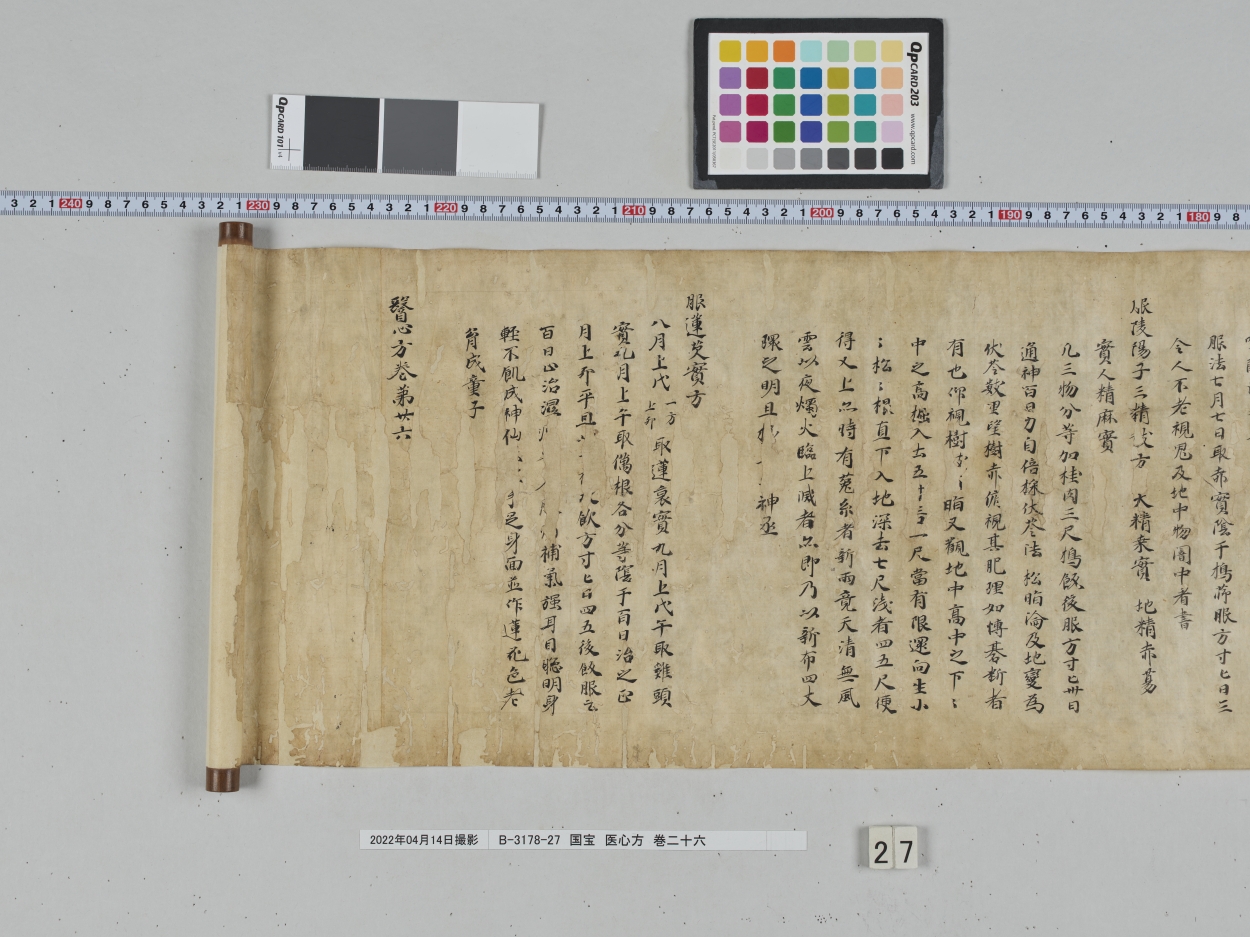 服法七月七日取赤實陰干擣篩服方寸匕日三
令人不老視鬼及地中物闇中看書
服陵陽子三精 方 天精桒實 地精赤
實人精麻實
凡三物分等加桂肉三尺擣篩後服方寸匕卅日
通神百日力自倍採伏苓法 松脂淪及地變為
伏苓欲里望樹赤候視其肥理如博碁断者
有也仰視樹 脂又觀地中高中之下〻
中之高掘入去五十 一尺當有限還向生小
〻松〻根直下入地深去七尺浅者四五尺便
得又上亦時有菟糸者新雨竟天清無風
雲以夜燭火臨上滅者亦即乃以新布四丈
環之明旦 神丞
服蓮 實方
八月上戊 一方上卯 取蓮 實九月上戊午取雞頭
實九月上午取 根各分等陰干百日治之正
月上卯平旦 飲方寸匕 四五後飯服之
百日止治濕 補氣强耳目聰明身
輕不飢成神仙 手足身面並作蓮花色
成童子
醫心方卷第廿六
QPCARD 101 v4
QPCARD 203 www.qpcard.com
3 2 1 240 9 8 7 6 5 4 3 2 1 230 9 8 7 6 5 4 3 2 1 220 9 8 7 6 5 4 3 2 1 210 9 8 7 6 5 4 3 2 1 200 9 8 7 6 5 4 3 2 1 190 9 8 7 6 5 4 3 2 1 180 9 8
2022年04月14日撮影 B-3178-27 国宝 医心方 巻二十六
27